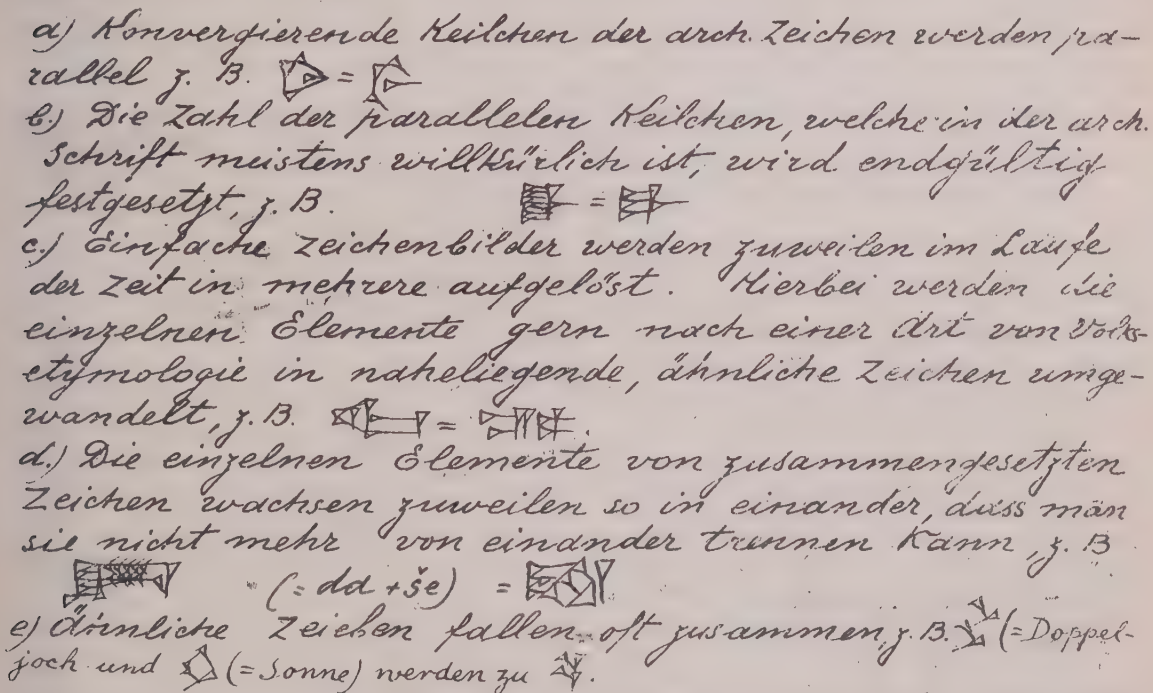 a) Konvergierende Keilchen der arch. Zeichen werden pa-
rallel z. B. =
b.) Die Zahl der parallelen Keilchen, welche in der arch.
Schrift meistens willkürlich ist, wird endgültig
festgesetzt, z. B. =
c.) Einfache Zeichenbilder werden zuweilen im Laufe
der Zeit in mehrere aufgelöst. Hierbei werden die
einzelnen Elemente gern nach einer Art von Volks-
etymologie in naheliegende, ähnliche Zeichen umge-
wandelt, z. B. = .
d.) Die einzelnen Elemente von zusammengesetzten
Zeichen wachsen zuweilen so in einander, dass man
sie nicht mehr von einander trennen kann, z. B
(= da + še) =
e) Ähnliche Zeichen fallen oft zusammen, z. B. (= Doppel-
joch und (= Sonne) werden zu .